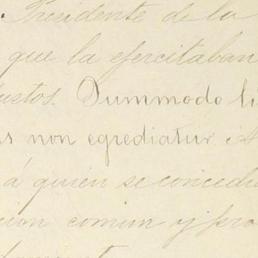 . Presidente de la
que la ejercitaban
ustos. Dummodo li
s non egrediatur.
á quien se concedi
cion comun y pro